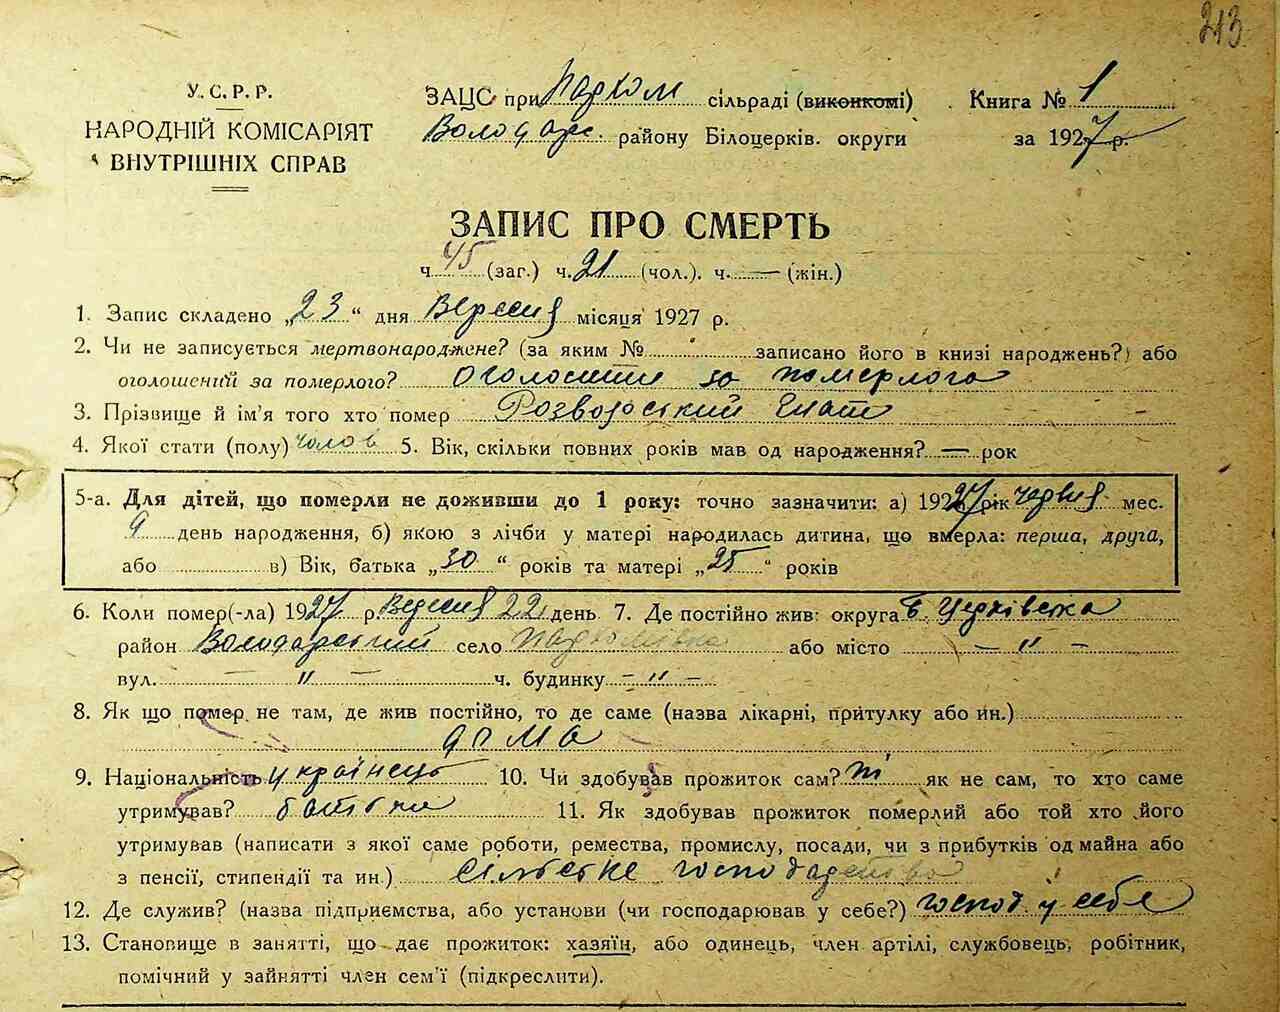 213
У. С. Р. Р.
НАРОДНІЙ КОМІСАРІЯТ
ВНУТРІШНІХ СПРАВ
ЗАЦС при Пархом сільраді (виконкомі)
Володарс. району Білоцерків. округи
Книга № 1
за 1927 р.
ЗАПИС ПРО СМЕРТЬ
ч. 45 (заг.) ч. 21 (чол.). ч. — (жін.)
1. Запис складено „23“ дня Вересня місяця 1927 р.
2. Чи не записується мертвонароджене? (за яким № записано його в книзі народжень?) або
оголошений за померлого? оголосити за померлого
3. Прізвище й ім'я того хто помер Розводоський Гнат
4. Якої стати (полу) чолов 5. Вік, скільки повних років мав од народження? — рок
5-а. Для дітей, що померли не доживши до 1 року: точно зазначити: а) 1927 рік червня мес.
9 день народження, б) якою з лічби у матері народилась дитина, що вмерла: перша, друга,
або в) Вік, батька „30“ років та матері „25“ років
6. Коли помер(-ла) 1927 р. Вересня 22 день. 7. Де постійно жив: округа Б. Церківська
район Володарський село Пархомівка або місто — „ —
вул. — „ — ч. будинку — „ —
8. Як що помер не там, де жив постійно, то де саме (назва лікарні, притулку або ин.)
дома
9. Національність українець 10. Чи здобував прожиток сам? ні як не сам, то хто саме
утримував? батьки 11. Як здобував прожиток померлий або той хто його
утримував (написати з якої саме роботи, ремества, промислу, посади, чи з прибутків од майна або
з пенсії, стипендії та ин.) сільське господарство
12. Де служив? (назва підприємства, або установи (чи господарював у себе?) господ у себе
13. Становище в занятті, що дає прожиток: хазяїн, або одинець, член артілі, службовець, робітник,
помічний у зайнятті член сем'ї (підкреслити).